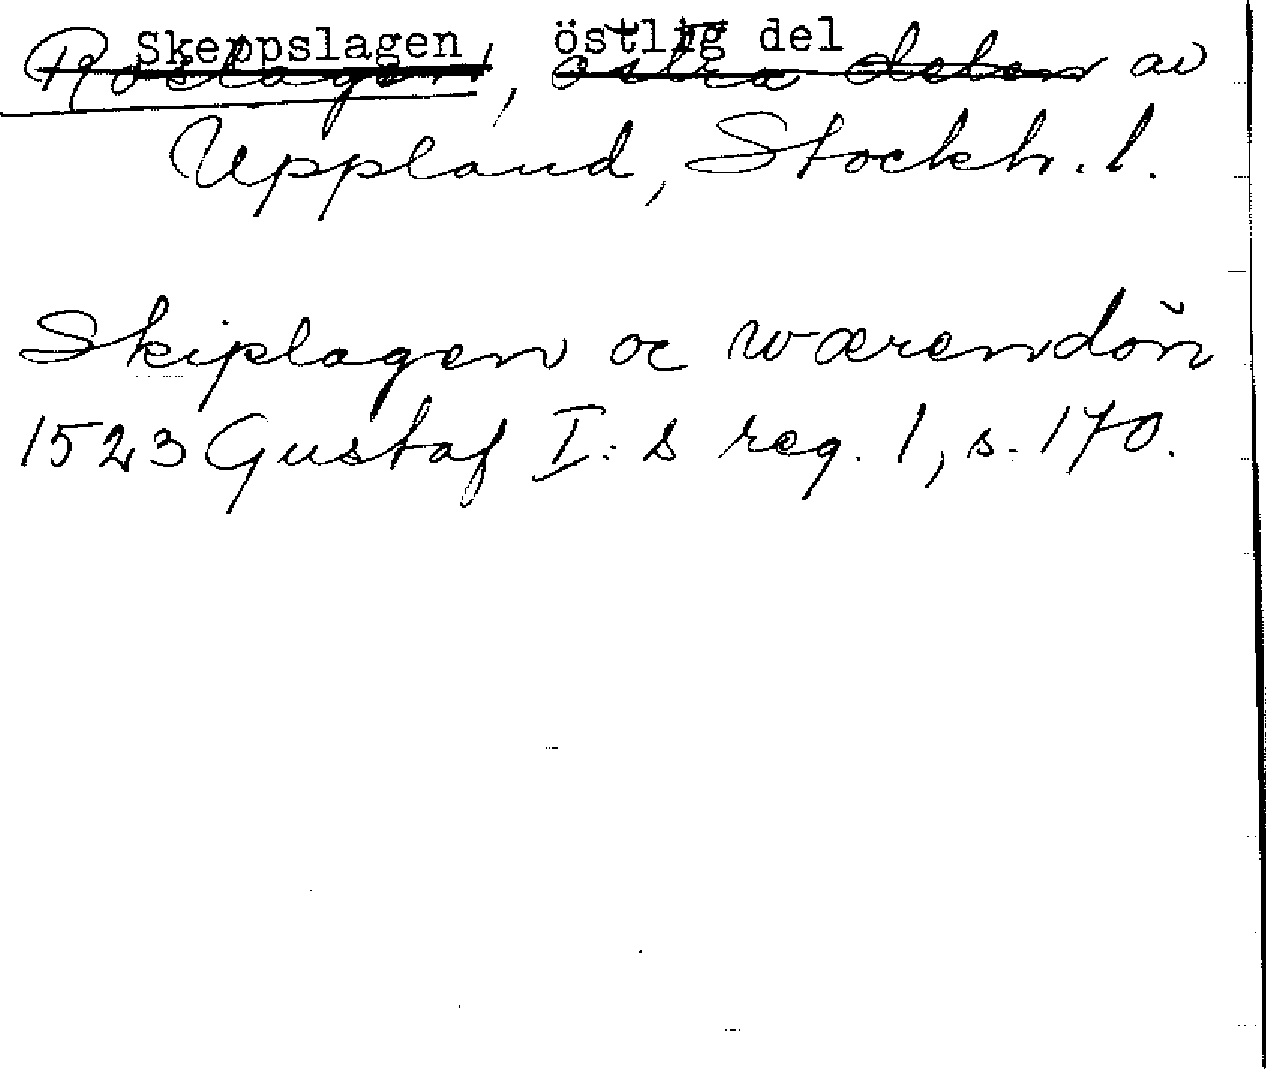 Skeppslagen, östlig del
Roslagen, östra delen av
Uppland, Stockh. l.
Skiplagen oc wærendön
1523 Gustaf I:s reg. 1, s. 170.